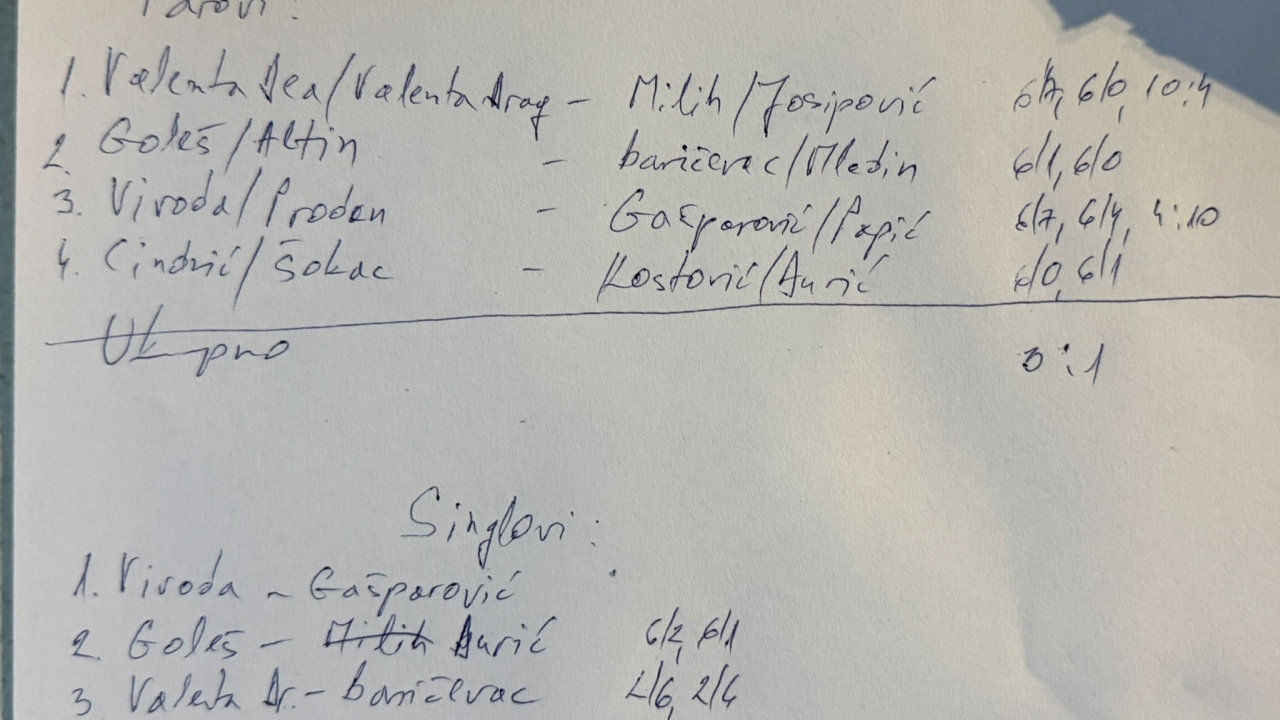 Parovi:
1. Valenta Dea/Valenta Drag - Milih/Josipović 6/7, 6/0, 10:4
2. Goleš/Altin - baričevac/Mledin 6/1, 6/0
3. Viroda/Prodan - Gašparović/Papić 6/7, 6/4, 4:10
4. Cindrić/Šokac - Kostović/Aurić 6/0, 6/1
Ukupno 3:1
Singlovi:
1. Viroda - Gašparović
2. Goleš - Milih Aurić 6/2, 6/1
3 Valenta Dr. - baričevac 2/6, 2/6